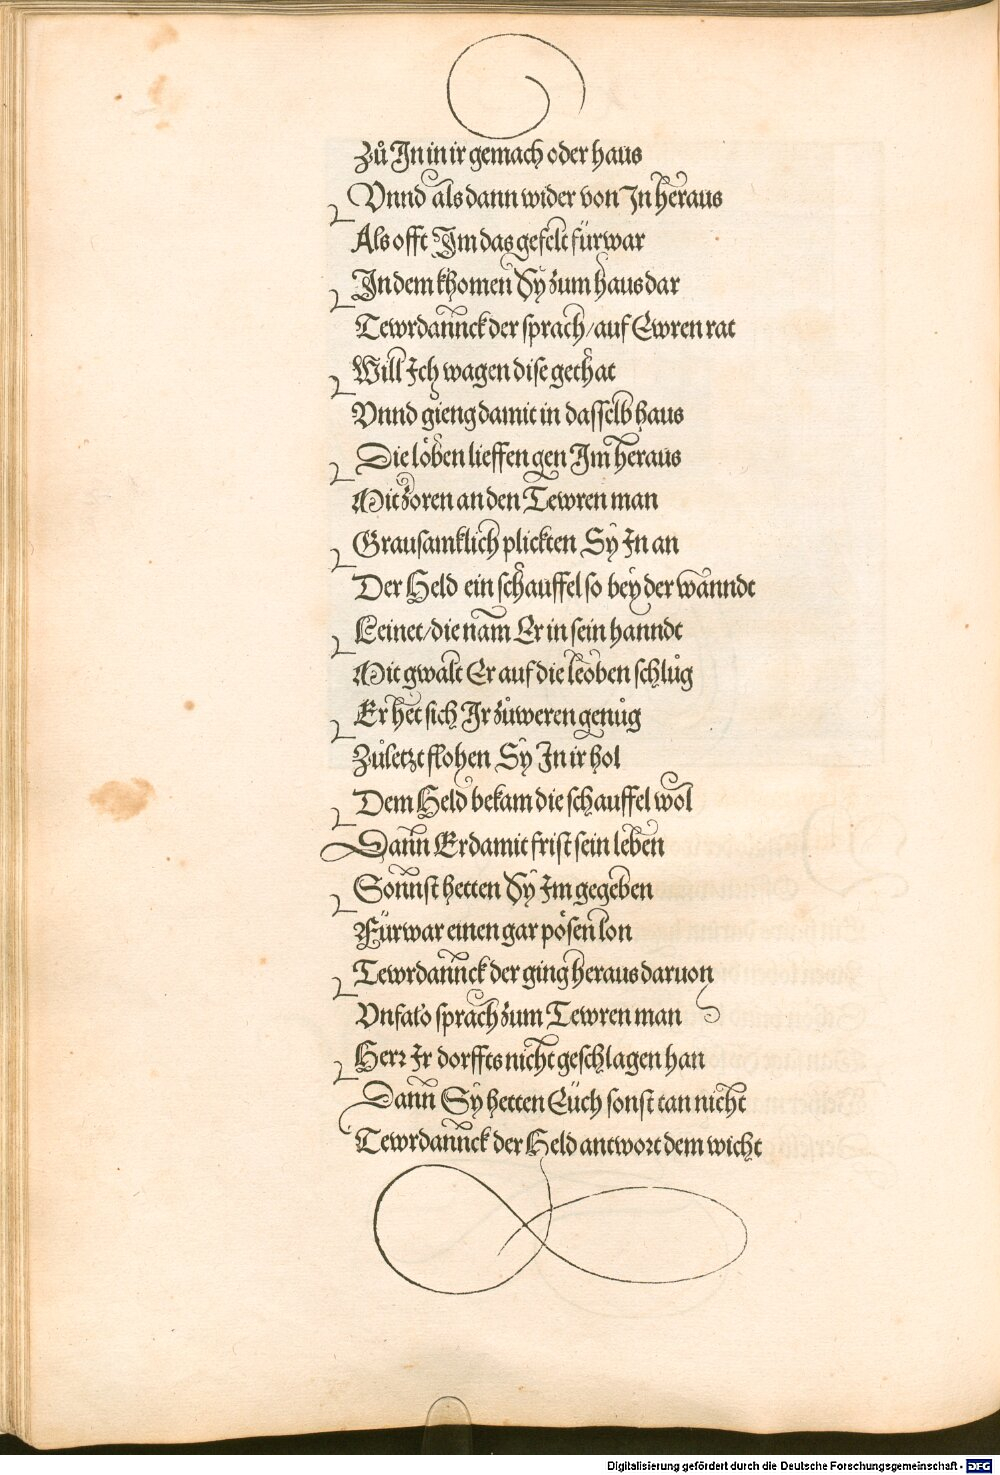 Zů In in ir gemach oder haus
Vnnd als dann wider von In heraus
Als offt Im das gefelt fürwar
In dem khomen Sy zum haus dar
Tewrdannck der sprach/auf Ewren rat
Will Ich wagen dise gethat
Vnnd gieng damit in dasselb haus
Die löben lieffen gen Im heraus
Mit zoren an den Tewren man
Grausamklich plickten Sy In an
Der Held ein schauffel so bey der wanndt
Leinet/die nam Er in sein hanndt
Mit gwalt Er auf die leoben schlůg
Er het sich Ir zůweren genůg
Zůletzt flohen Sy In ir hol
Dem Held bekam die schauffel wol
Dann Er damit frist sein leben
Sonnst hetten Sy Im gegeben
Fürwar einen gar pösen lon
Tewrdannck der ging heraus daruon
Vnfalo sprach zum Tewren man
Herr Ir dorffts nicht geschlagen han
Dann Sy hetten Eüch sonst tan nicht
Tewrdannck der Held antwort dem wicht
Digitalisierung gefördert durch die Deutsche Forschungsgemeinschaft - DFG